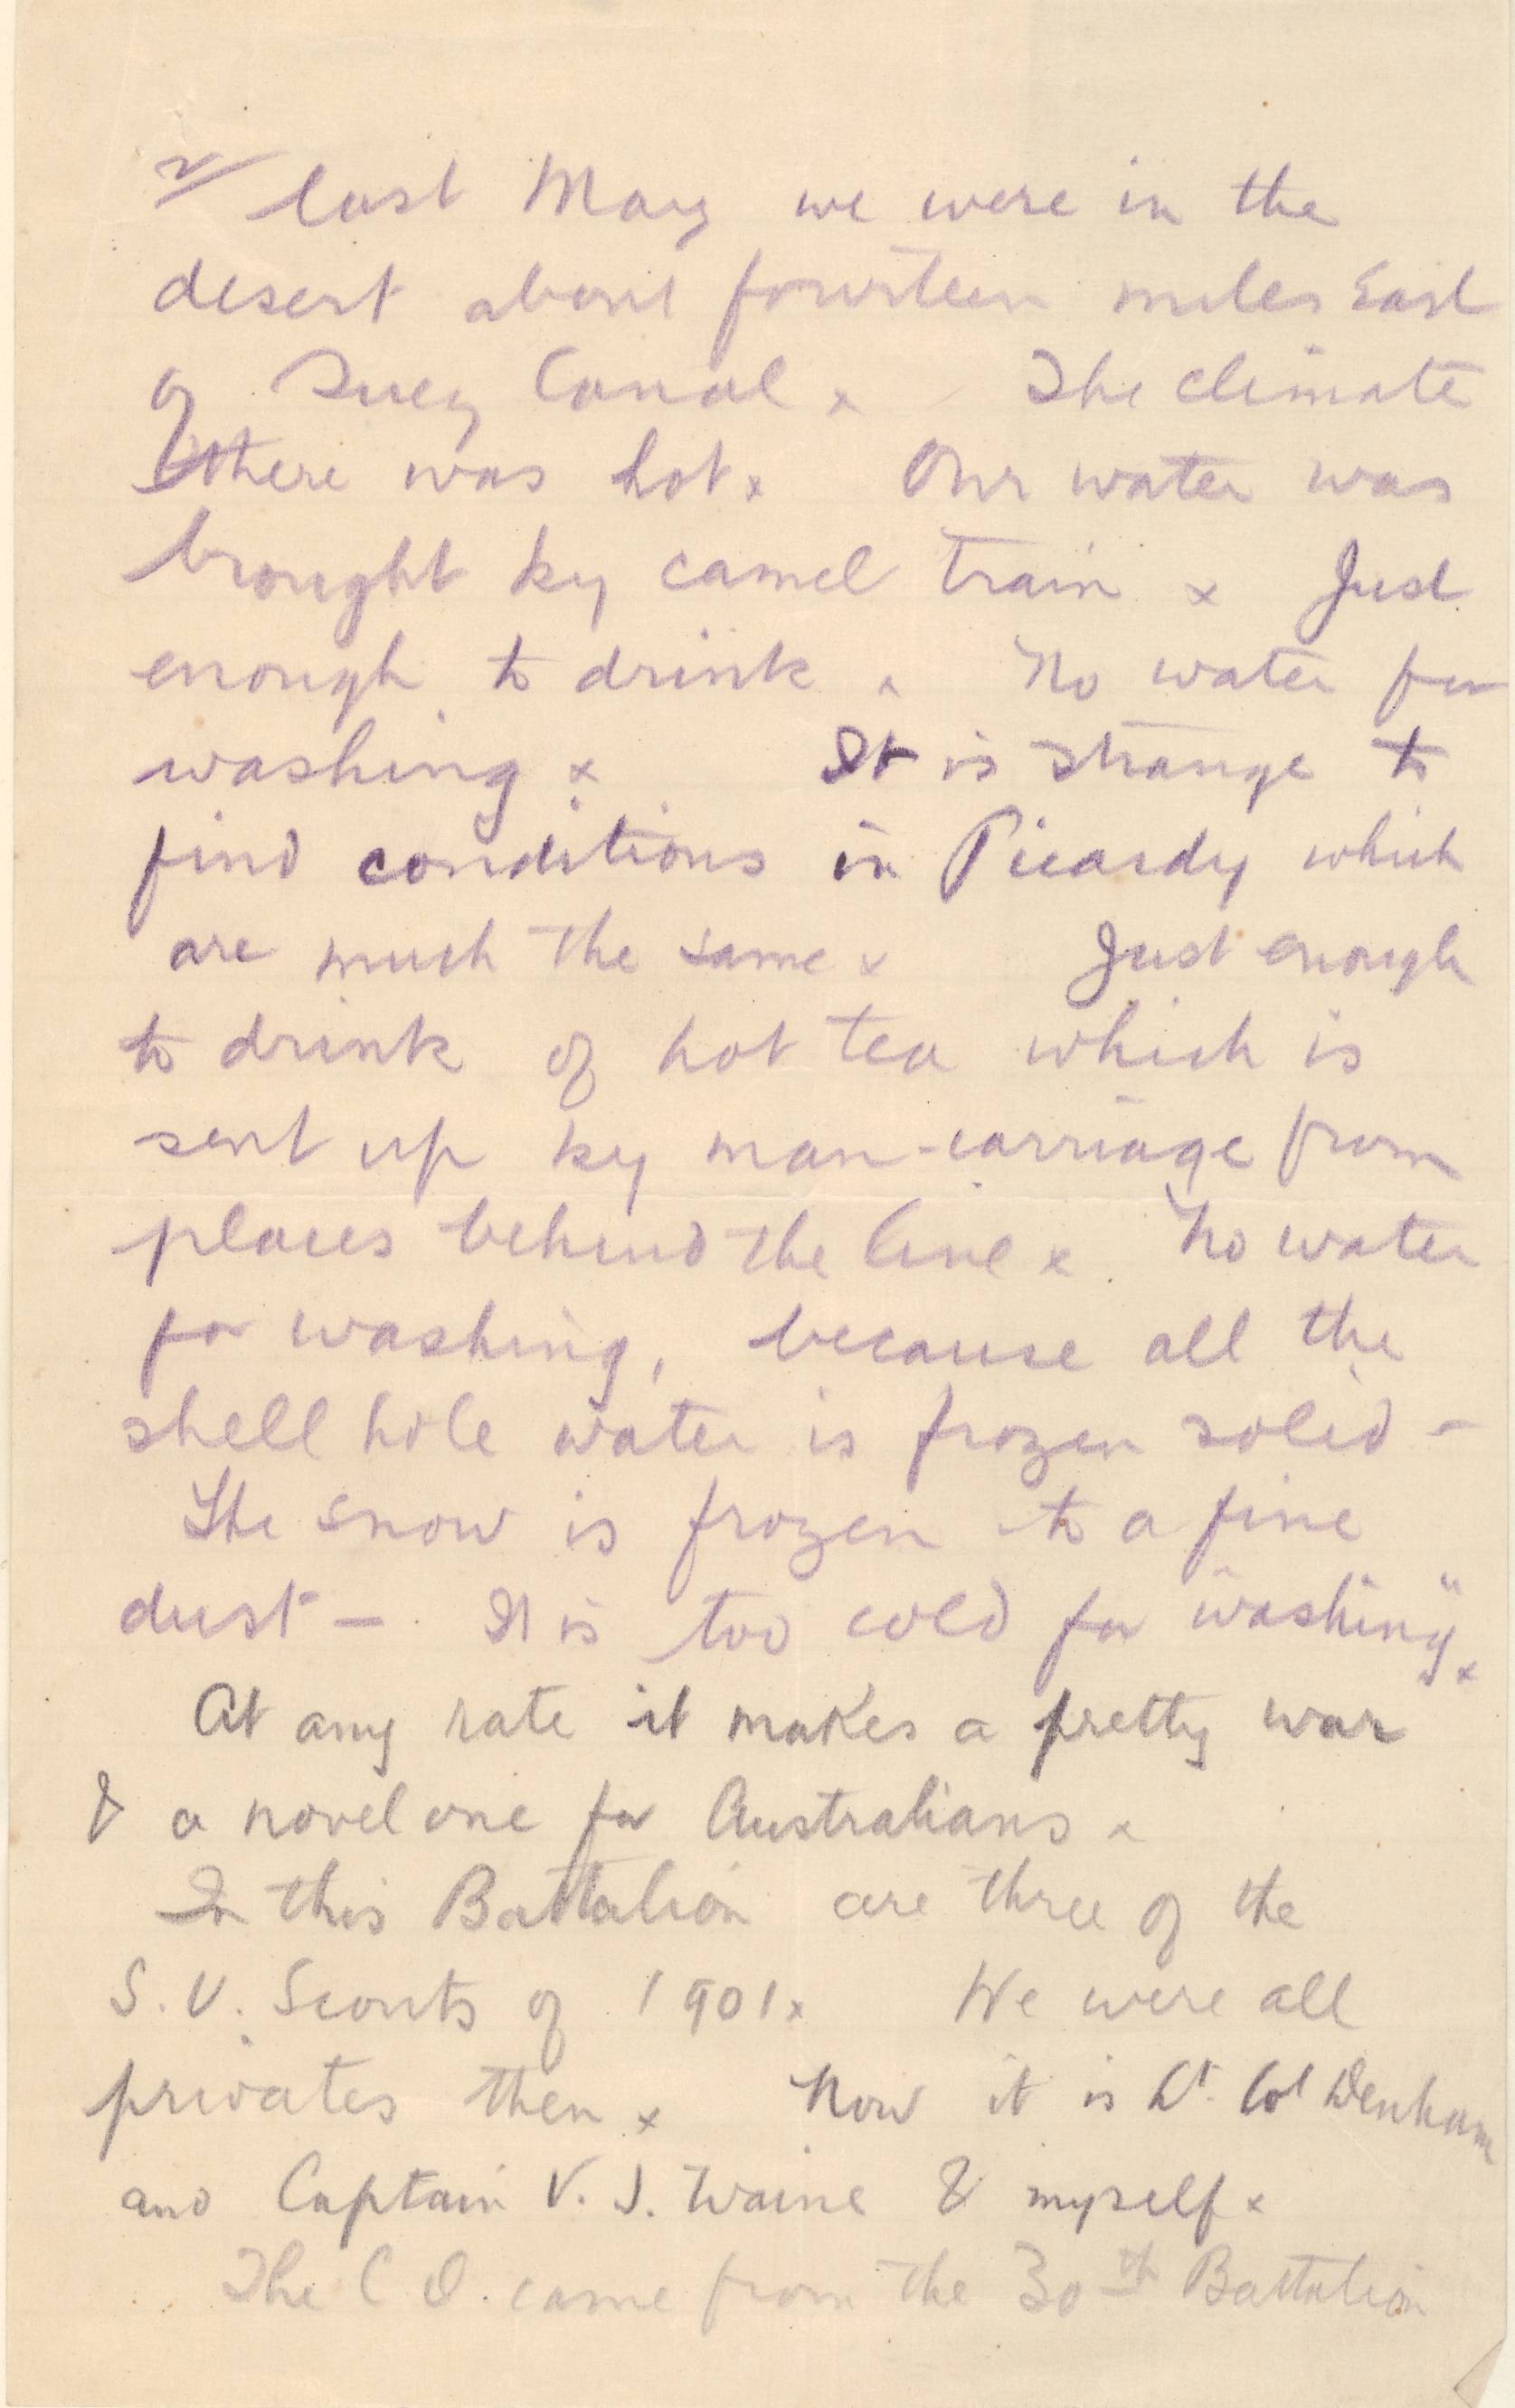 2/ last May we were in the
desert about fourteen miles East
of Suez Canal x The climate
there was hot x Our water was
brought by camel train x Just
enough to drink x No water for
washing x It is strange to
find conditions in Picardy which
are much the same x Just enough
to drink of hot tea which is
sent up by man-carriage from
places behind the line x No water
for washing, because all the
shell hole water is frozen solid -
The snow is frozen to a fine
dust - It is too cold for "washing" x
At any rate it makes a pretty war
& a novel one for Australians x
In this Battalion are three of the
S. U. Scouts of 1901 x We were all
privates then x Now it is Lt. Col Denham
and Captain V. J. Waine & myself x
The C O. came from the 30th Battalion